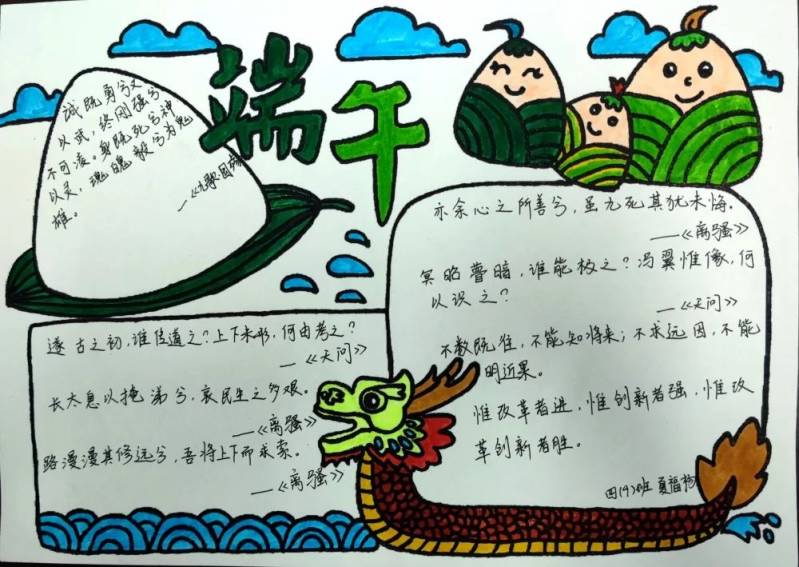 端午
诚既勇兮又
以武,终刚强兮
不可凌。身既死兮神
以灵,魂魄毅兮为鬼
雄。
—《九歌·国殇》
遂古之初,谁传道之?上下未形,何由考之?
—《天问》
长太息以掩涕兮,哀民生之多艰。
—《离骚》
路漫漫其修远兮,吾将上下而求索。
—《离骚》
亦余心之所善兮,虽九死其犹未悔。
—《离骚》
冥昭瞢暗,谁能极之?冯翼惟像,何
以识之?
—《天问》
不数既往,不能知将来;不求远因,不能
明近果。
惟改革者进,惟创新者强,惟改
革创新者胜。
四(9)班 夏福